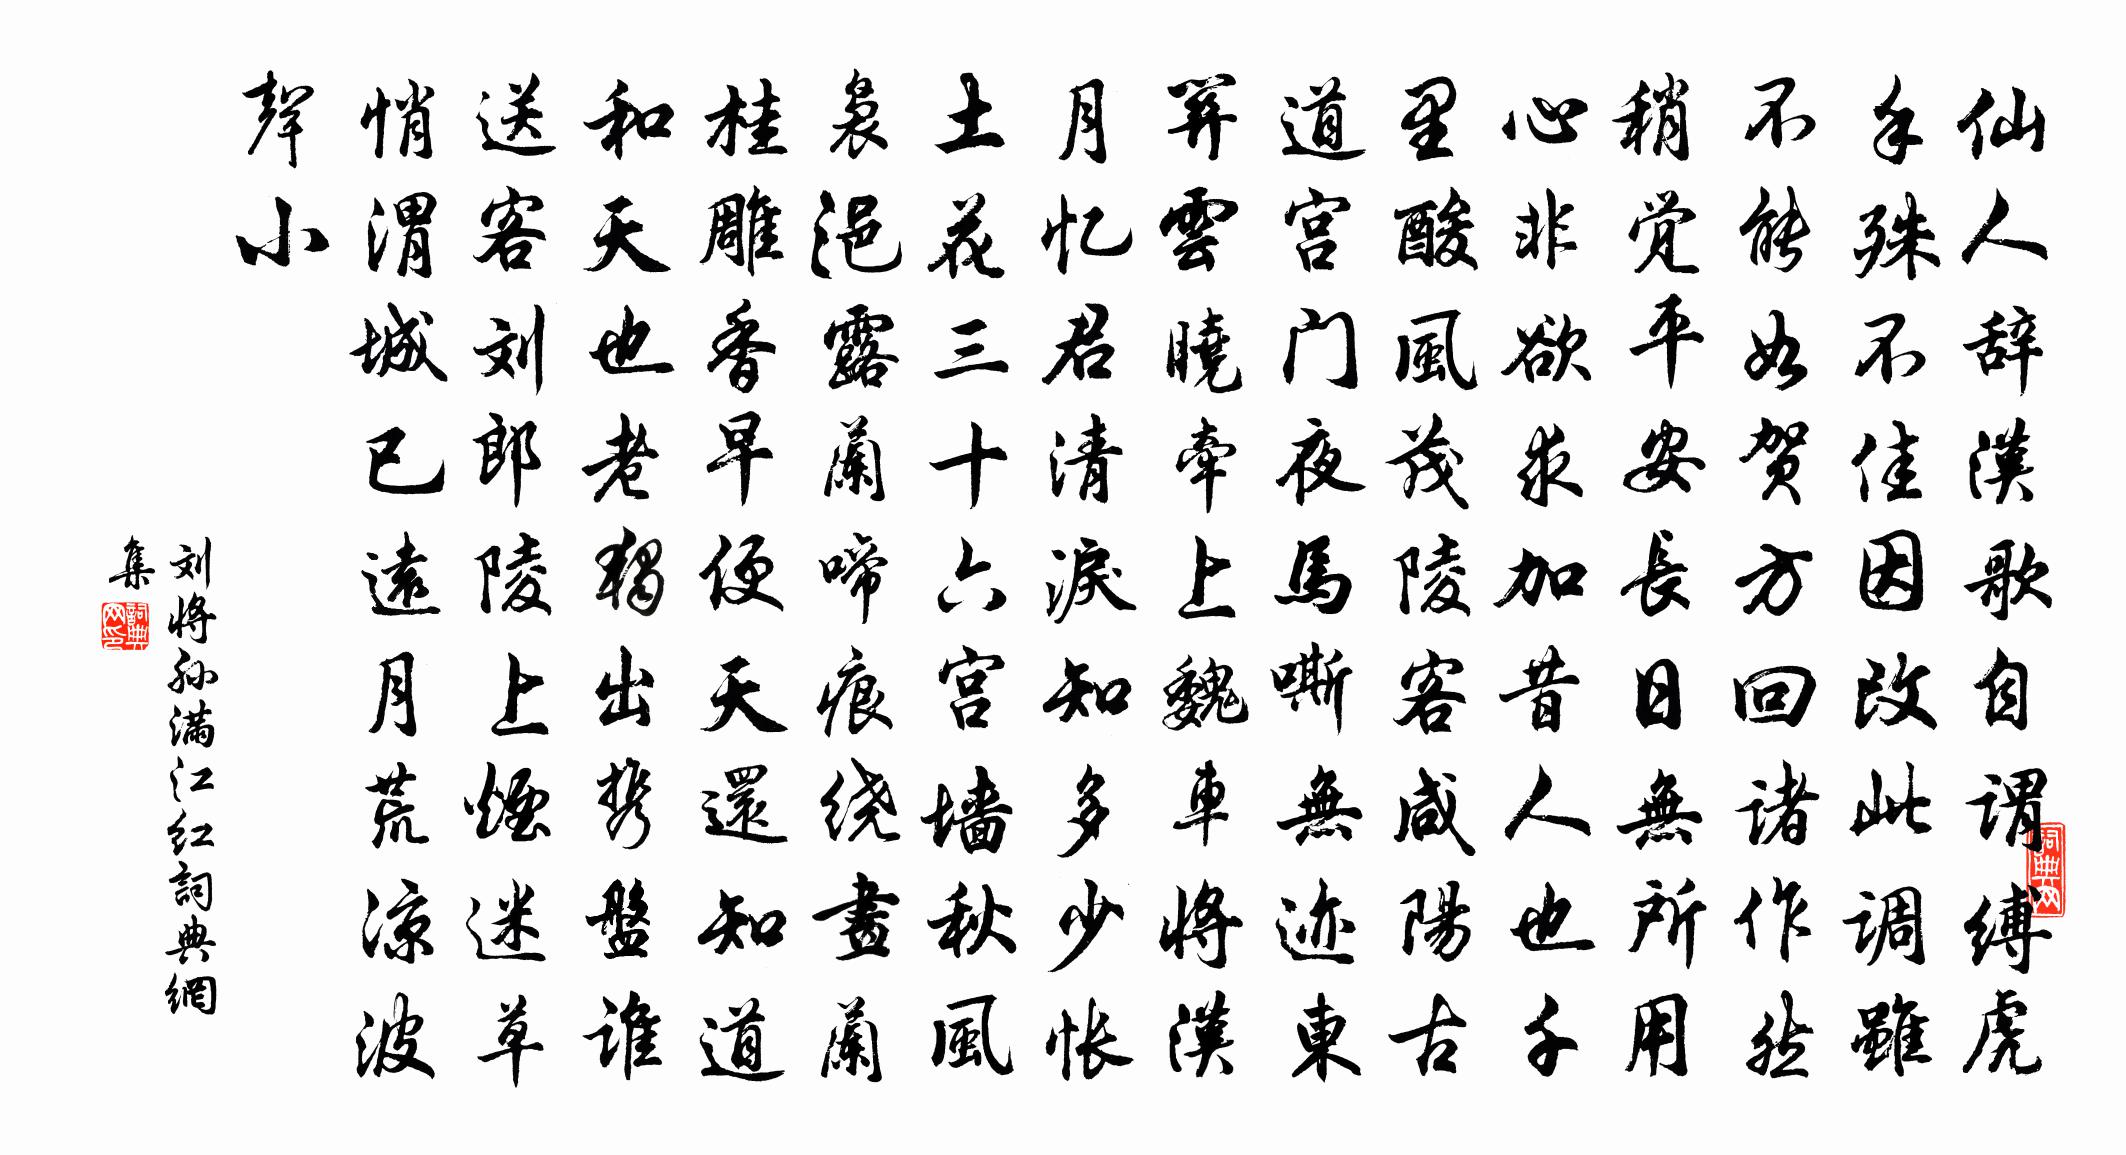 仙人辞漢歌自谓缚虎
手殊不佳因改此调雖
不能如贺方回诸作然
稍觉平安長日無所用
心非欲求加昔人也千
里酸風茂陵客咸陽古
道宫门夜馬嘶無迹東
關雲曉牵上魏車将漢
月忆君清淚知多少怅
土花三十六宫墙秋風
袅浥露蘭啼痕绕畫蘭
桂雕香早便天還知道
和天也老独出携盤谁
送客刘郎陵上煙迷草
悄渭城已遠月荒凉波
聲小
刘将孙满江红詞典網
集
詞典网
詞典网印